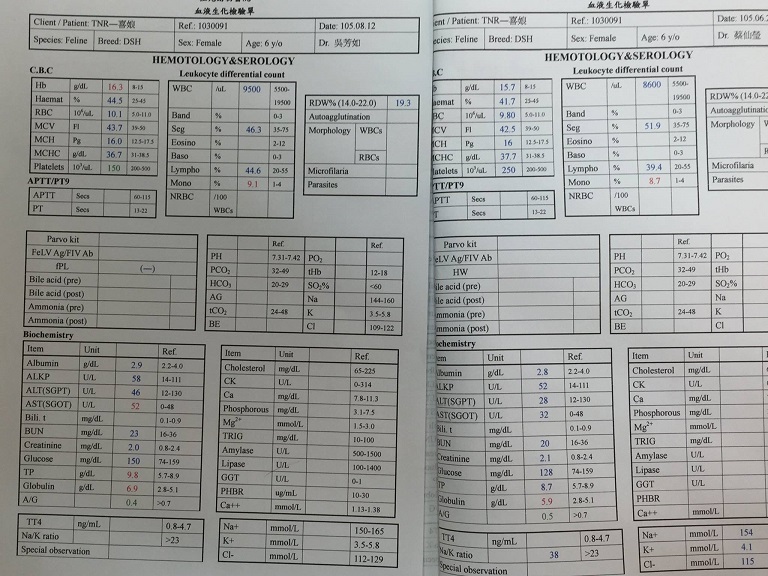 血液生化檢驗單
Client / Patient: TNR—喜媜 Ref.: 1030091 Date: 105.08.12
Species: Feline Breed: DSH Sex: Female Age: 6 y/o Dr. 吳芳如
HEMOTOLOGY&SEROLOGY
C.B.C Leukocyte differential count
Hb g/dL 16.3 8-15
Haemat % 44.5 25-45
RBC 10⁶/uL 10.1 5.0-11.0
MCV Fl 43.7 39-50
MCH Pg 16.0 12.5-17.5
MCHC g/dL 36.7 31-38.5
Platelets 10³/uL 150 200-500
WBC /uL 9500 5500-19500
Band % 0-3
Seg % 46.3 35-75
Eosino % 2-12
Baso % 0-3
Lympho % 44.6 20-55
Mono % 9.1 1-4
NRBC /100 WBCs
RDW% (14.0-22.0) 19.3
Autoagglutination
Morphology WBCs
RBCs
Microfilaria
Parasites
APTT/PT9
APTT Secs 60-115
PT Secs 13-22
Parvo kit
FeLV Ag/FIV Ab
fPL (—)
Bile acid (pre)
Bile acid (post)
Ammonia (pre)
Ammonia (post)
Ref. Ref.
PH 7.31-7.42 PO₂
PCO₂ 32-49 tHb 12-18
HCO₃ 20-29 SO₂% <60
AG Na 144-160
tCO₂ 24-48 K 3.5-5.8
BE Cl 109-122
Biochemistry
Item Unit Ref.
Albumin g/dL 2.9 2.2-4.0
ALKP U/L 58 14-111
ALT(SGPT) U/L 46 12-130
AST(SGOT) U/L 52 0-48
Bili. t mg/dL 0.1-0.9
BUN mg/dL 23 16-36
Creatinine mg/dL 2.0 0.8-2.4
Glucose mg/dL 150 74-159
TP g/dL 9.8 5.7-8.9
Globulin g/dL 6.9 2.8-5.1
A/G 0.4 >0.7
Item Unit Ref.
Cholesterol mg/dL 65-225
CK U/L 0-314
Ca mg/dL 7.8-11.3
Phosphorous mg/dL 3.1-7.5
Mg²⁺ mmol/L 1.5-3.0
TRIG mg/dL 10-100
Amylase U/L 500-1500
Lipase U/L 100-1400
GGT U/L 0-1
PHBR ug/mL 10-30
Ca++ mmol/L 1.13-1.38
TT4 ng/mL 0.8-4.7
Na/K ratio >23
Special observation
Na+ mmol/L 150-165
K+ mmol/L 3.5-5.8
Cl- mmol/L 112-129
血液生化檢驗單
ent / Patient: TNR—喜媜 Ref.: 1030091 Date: 105.06.2
ecies: Feline Breed: DSH Sex: Female Age: 6 y/o Dr. 蔡仙瑩
HEMOTOLOGY&SEROLOGY
.C Leukocyte differential count
b g/dL 15.7 8-15
aemat % 41.7 25-45
BC 10⁶/uL 9.80 5.0-11.0
CV Fl 42.5 39-50
CH Pg 16 12.5-17.5
CHC g/dL 37.7 31-38.5
latelets 10³/uL 250 200-500
WBC /uL 8600 5500-19500
Band % 0-3
Seg % 51.9 35-75
Eosino % 2-12
Baso % 0-3
Lympho % 39.4 20-55
Mono % 8.7 1-4
NRBC /100 WBCs
RDW% (14.0-22
Autoagglutinatio
Morphology W
R
Microfilaria
Parasites
TT/PT9
PTT Secs 60-115
T Secs 13-22
Parvo kit
eLV Ag/FIV Ab
HW
ile acid (pre)
ile acid (post)
mmonia (pre)
mmonia (post)
Ref.
PH 7.31-7.42 PO₂
PCO₂ 32-49 tHb
HCO₃ 20-29 SO₂%
AG Na
tCO₂ 24-48 K
BE Cl
ochemistry
em Unit Ref.
lbumin g/dL 2.8 2.2-4.0
LKP U/L 52 14-111
LT(SGPT) U/L 28 12-130
ST(SGOT) U/L 32 0-48
ili. t mg/dL 0.1-0.9
UN mg/dL 20 16-36
reatinine mg/dL 2.1 0.8-2.4
lucose mg/dL 128 74-159
TP g/dL 8.7 5.7-8.9
lobulin g/dL 5.9 2.8-5.1
A/G 0.5 >0.7
Item Unit
Cholesterol mg/dL
CK U/L
Ca mg/dL
Phosphorous mg/dL
Mg²⁺ mmol/L
TRIG mg/dL
Amylase U/L
Lipase U/L
GGT U/L
PHBR ug/mL
Ca++ mmol/L
TT4 ng/mL 0.8-4.7
Na/K ratio 38 >23
pecial observation
Na+ mmol/L 154
K+ mmol/L 4.1
Cl- mmol/L 115